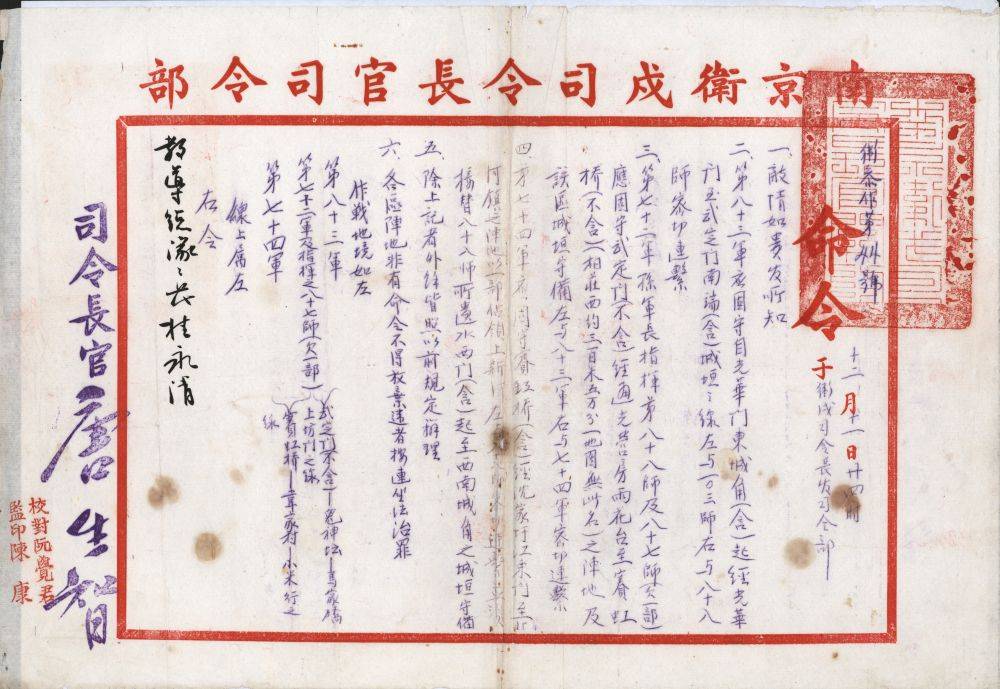 南京衛戍司令長官司令部
命令
衛參作第卅號
十二月十一日廿四時
于衛戍司令長官司令部
一、敵情如貴官所知
二、第八十三軍應固守自光華門東城角(含)起經光華
門至武定門南端(含)城垣之線左與一〇三師右與八十八
師密切連繫
三、第七十二軍孫軍長指揮第八十八師及八十七師(欠一部)
應固守武定門(不含)經通光營房雨花台至賽虹
橋(不含)(相庄西約三百米五万分一地圖無此名)之陣地及
該區城垣守備左與八十三軍右與七十四軍密切連繫
四、第七十四軍應固守賽虹橋(含)經沈家圩江東門至
河鎮之陣地以一部佔領上新河左
接替八十八師所遺水西門(含)起至西南城角之城垣守備
五、除上記者外餘皆照以前規定辦理
六、各區陣地非有命令不得放棄違者按連坐法治罪
作戰地境如左
第八十三軍
第七十二軍及指揮之八十七師(欠一部)
武定門(不含)—鬼神坛—馬家橋
上坊門之線
第七十四軍
賽虹橋—小米行之
線
線上屬左
右令
教導總隊總隊長桂永清
司令長官唐生智
校對阮覺君
監印陳康